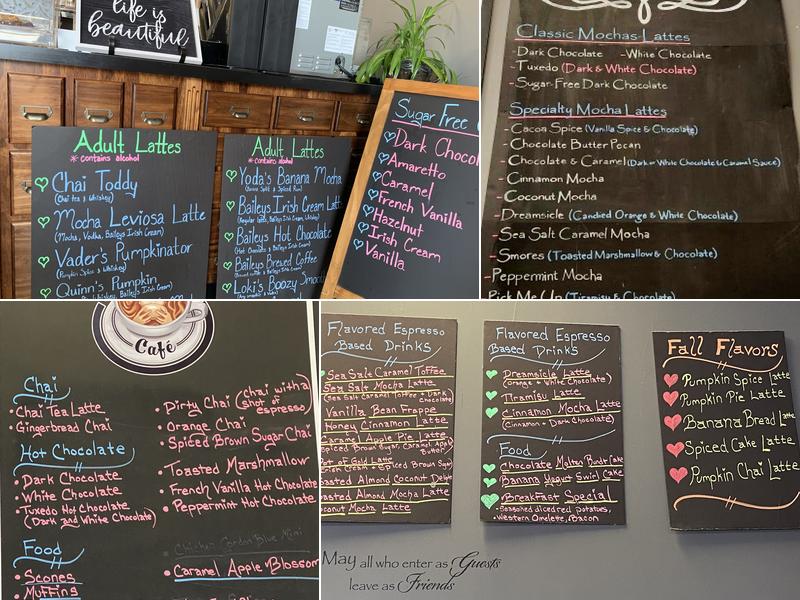 life is
beautiful
Adult Lattes
* contains alcohol
Chai Toddy
(Chai tea & Whiskey)
Mocha Leviosa Latte
(Mocha, Vodka, Baileys Irish Cream)
Vader's Pumpkinator
(Pumpkin Spice & Whiskey)
Quinn's Pumpkin
Whiskey, Baileys Irish Cream)
Adult Lattes
* contains alcohol
Yoda's Banana Mocha
(Banana Split & Spiced Rum)
Baileys Irish Cream Latt
Baileys Irish Cream, Whiskey)
Baileys Hot Chocolate
(Hot Chocolate & Baileys Irish Cream)
Baileys Brewed Coffee
Baileys Irish Cream)
Loki's Boozy Smoo
Sugar Free
Dark Chocol
Amaretto
Caramel
French Vanilla
Hazelnut
Irish Cream
Vanilla
Classic Mochas-Lattes
-Dark Chocolate -White Chocolate
-Tuxedo (Dark & White Chocolate)
-Sugar-Free Dark Chocolate
Specialty Mocha Lattes
-Cacoa Spice (Vanilla Spice & Chocolate)
-Chocolate Butter Pecan
-Chocolate & Caramel (Dark or White Chocolate & Caramel Sauce)
-Cinnamon Mocha
-Coconut Mocha
-Dreamsicle (Candied Orange & White Chocolate)
-Sea Salt Caramel Mocha
-Smores (Toasted Marshmallow & Chocolate)
-Peppermint Mocha
Pick Me Up (Tiramisu & Chocolate)
Café
Chai
•Chai Tea Latte
•Gingerbread Chai
Hot Chocolate
•Dark Chocolate
•White Chocolate
•Tuxedo Hot Chocolate
(Dark and White Chocolate)
Food
•Scones
•Muffins
•Dirty Chai (chai with a
shot of
espresso)
•Orange Chai
•Spiced Brown Sugar Chai
•Toasted Marshmallow
•French Vanilla Hot Chocolate
•Peppermint Hot Chocolate
•Chicken Cordon Blue Mini
•Caramel Apple Blossom
Flavored Espresso
Based Drinks
Sea Salt Caramel Toffee
Sea Salt Mocha Latte
(Sea Salt Caramel Toffee + Dark
chocolate)
Vanilla Bean Frappe
Honey Cinnamon Latte
Caramel Apple Pie Latte
Spiced Brown Sugar, Caramel Apple
Butter
of Gold Latte
Spiced Brown Sugar
oasted Almond Coconut
oasted Almond Mocha Latte
oconut Mocha Latte
Flavored Espresso
Based Drinks
Dreamsicle Latte
(Orange + White Chocolate)
Tiramisu Latte
Cinnamon Mocha Latte
(Cinnamon + Dark Chocolate)
Food
Chocolate Molten Bundt Cake
Banana Yogurt Swirl Cake
Breakfast Special
•Seasoned diced red potatoes,
•Western Omelette, Bacon
Fall Flavors
Pumpkin Spice Latte
Pumpkin Pie Latte
Banana Bread Latt
Spiced Cake Latte
Pumpkin Chai Latte
May all who enter as Guests
leave as Friends